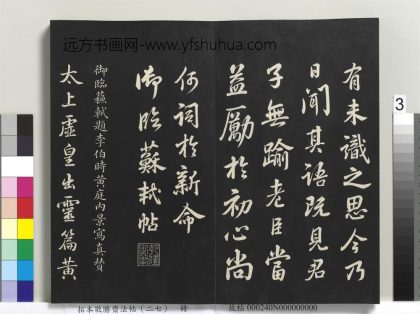 远方书画网-www.yfshuhua.com
有未識之思今乃
日聞其語既見君
子無踰老臣當
益勵於初心尚
何詞於新命
御臨蘇軾帖
御臨蘇軾題李伯時黃庭內景寫真贊
太上虛皇出靈篇黃
3
拓本敬勝齋法帖(二七) 冊
故帖 000240N000000000